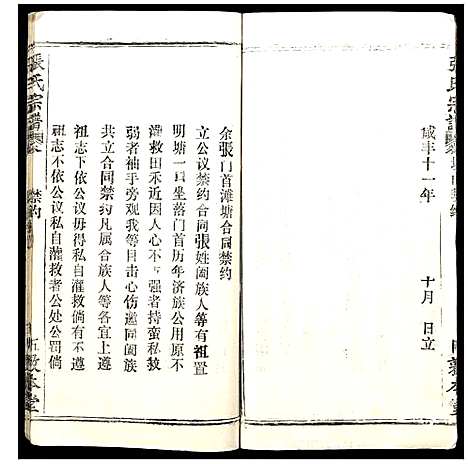 咸丰十一年
十月 日立
余張门首滩塘合同禁约
立公议禁约合同張姓阖族人等有祖置
明塘一口坐落门首历年济族公用原不
灌救田禾近因人心不一强者持蛮私救
弱者袖手旁观我等目击心伤邀同阖族
共立合同禁约凡属合族人等各宜上遵
祖志下依公议毋得私自灌救倘有不遵
祖志不依公议私自灌救者公处公罚倘
張氏宗譜
禁约